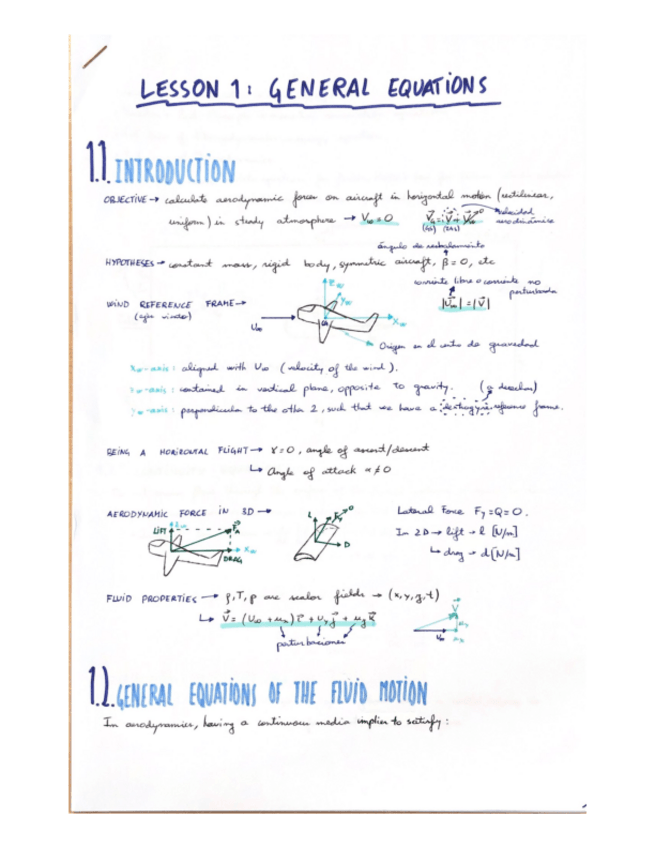 LESSON 1: GENERAL EQUATIONS
1.1. INTRODUCTION
OBJECTIVE → calculate aerodynamic forces on aircraft in horizontal motion (rectilinear,
uniform) in steady atmosphere → V∞ = 0
velocidad
aerodinámica
ángulo de resbalamiento
HYPOTHESES → constant mass, rigid body, symmetric aircraft, β = 0, etc
corriente libre o corriente no
perturbada
WIND REFERENCE FRAME →
(ejes viento)
Zw
Yw
Xw
CG
U∞
|U∞| = |V|
Origen en el centro de gravedad
xw-axis: aligned with U∞ (velocity of the wind).
zw-axis: contained in vertical plane, opposite to gravity. (a derechas)
yw-axis: perpendicular to the other 2, such that we have a dextrogyre reference frame.
BEING A HORIZONTAL FLIGHT → γ = 0, angle of ascent/descent
↳ Angle of attack α ≠ 0
AERODYNAMIC FORCE IN 3D →
LIFT
Zw
FA
Xw
DRAG
L
Fy
0
D
Lateral Force Fy = Q = 0.
In 2D → lift → l [N/m]
↳ drag → d [N/m]
FLUID PROPERTIES → ρ, T, p are scalar fields → (x, y, z, t)
↳ V = (U∞ + ux) i + uy j + uz k
perturbaciones
V
U∞
ux
1.2. GENERAL EQUATIONS OF THE FLUID MOTION
In aerodynamics, having a continuous media implies to satisfy: